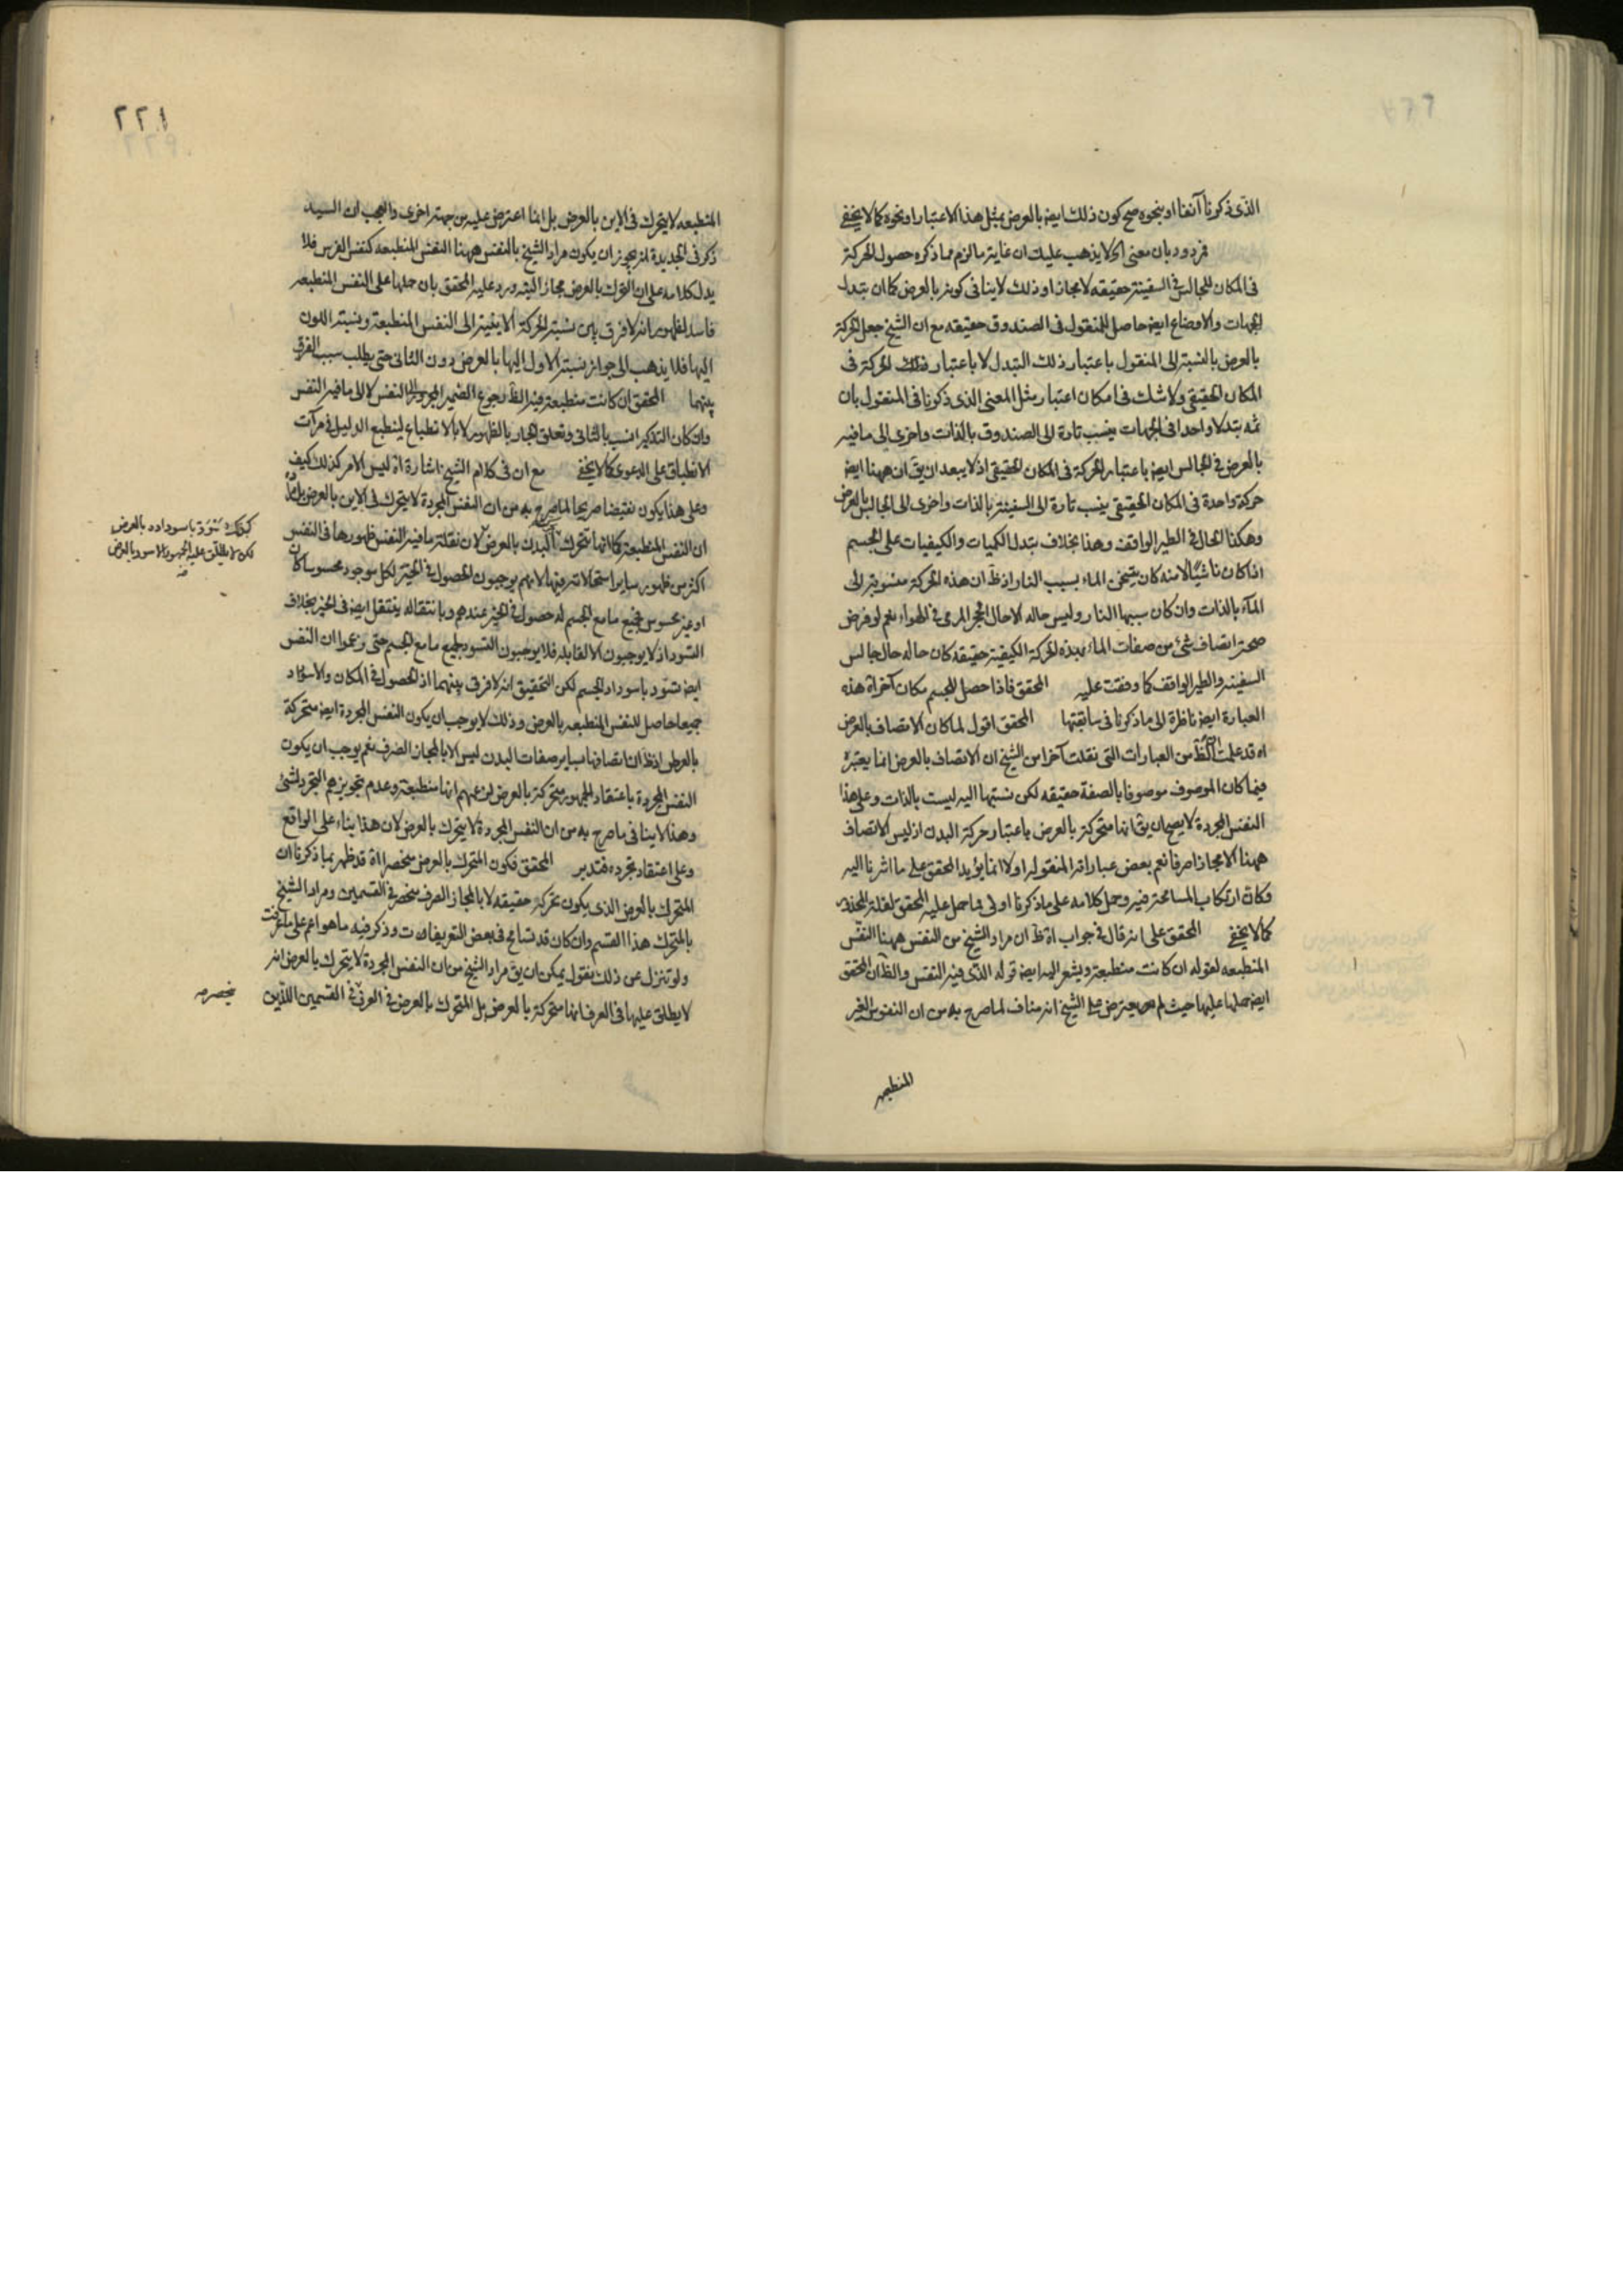 الذى ذكرنا آنفا او بنحوه صح كون ذلك ايض بالعرض بمثل هذا الاعتبار او نحوه كما لا يخفى
فردود بان معنى اى لا يذهب عليك ان غاية ما لزم مما ذكره حصول الحركة
فى المكان للجالس فى السفينة حقيقه لا مجازا وذلك لا ينافى كونه بالعرض كما ان تبدل
الجهات والاوضاع ايض حاصل للمنقول فى الصندوق حقيقه مع ان الشيخ جعل الحركة
بالعرض بالنسبة الى المنقول باعتبار ذلك التبدل لا باعتبار الحركة فى
المكان الحقيقى ولا شك فى امكان اعتبار مثل المعنى الذى ذكرنا فى المنقول بان
ثمه تبدلا واحدا فى الجهات ينسب تارة الى الصندوق بالذات واخرى الى ما فيه
بالعرض فى الجالس ايض باعتبار الحركة فى المكان الحقيقى اذ لا يبعد ان يق ان ههنا ايض
حركة واحدة فى المكان الحقيقى ينسب تارة الى السفينة بالذات واخرى الى الجالس بالعرض
وهكذا الحال فى الطير الواقف وهذا بخلاف تبدل الكميات والكيفيات على الجسم
اذا كان ناشيا لا منه كان يتسخن الماء بسبب النار اذ ظ ان هذه الحركة منسوبة الى
الماء بالذات وان كان سببها النار وليس حاله الا حال الحجر المرمى فى الهواء نعم لو فرض
صحة اتصاف شئ من صفات الماء بهذه الحركة الكيفية حقيقه كان حاله حال جالس
السفينه والطير الواقف كما وقفت عليه المحقق فاذا حصل للجسم مكان آخر اة هذه
العبارة ايض ناظرة الى ما ذكرنا فى سابقتها المحقق اقول لما كان الاتصاف بالعرض
اه قد علمت ان الظ من العبارات التى نقلت آخرا من الشيخ ان الاتصاف بالعرض انما يعتبره
فيما كان الموصوف موصوفا بالصفة حقيقه لكن نسبتها اليه ليست بالذات وعلى هذا
النفس المجردة لا يصح ان يق انها متحركة بالعرض باعتبار حركة البدن اذ ليس الاتصاف
ههنا الا مجازا صرفا نعم بعض عباراته المنقوله اولا انما يؤيد المحقق على ما اشرنا اليه
وكان ارتكاب المسامحة فيه وحمل كلامه على ما ذكرنا اولى مما حمل عليه المحقق لقلة المحذور
كما لا يخفى المحقق على انه قال فى جواب اة ظ ان مراد الشيخ من النفس ههنا النفس
المنطبعه لقوله ان كانت منطبعة ويشعر اليه ايض قوله الذى فيه النفس والظ ان المحقق
ايض حملها عليها حيث لم يعترض على الشيخ انه مناف لما صرح به من ان النفوس الغير
المنطبعه
٢٢١
المنطبعه لا يتحرك فى الاين بالعرض بل انما اعترض عليه من جهة اخرى والعجب ان السيد
ذكر فى الجديدة انه يجوز ان يكون مراد الشيخ بالنفس ههنا النفس المنطبعه كنفس الفرس فلا
يدل كلامه على ان التحرك بالعرض مجاز البته ورد عليه المحقق بان حملها على النفس المنطبعه
فاسد لظهور انه لا فرق بين نسبة الحركة الاينية الى النفس المنطبعة ونسبة اللون
اليها فلا يذهب الى جواز نسبة الاول اليها بالعرض دون الثانى حتى يطلب سبب الفرق
بينهما المحقق ان كانت منطبعة فيه الظ رجوع الضمير المجرور الى النفس لا الى ما فيه النفس
وان كان التذكير انسب بالثانى وتعلق الجار بالظهور لا بالانطباع لينطبع الدليل فى مرآت
الانطباق على الدعوى كما لا يخفى مع ان فى كلام الشيخ اشارة اذ ليس الامر كذلك كيف
وعلى هذا يكون نقيضا صريحا لما صرح به من ان النفس المجردة لا يتحرك فى الاين بالعرض بل
ان النفس المنطبعة كما انها تتحرك البدن بالعرض لان نقلة ما فيه النفس ظهورها فى النفس
اكثر من ظهور ساير استحالاته فيها لانهم يوجبون الحصول فى الحيز لكل موجود محسوسا كان
او غير محسوس فجميع ما مع الجسم له حصول فى الحيز عندهم وبانتقاله ينتقل ايض فى الحيز بخلاف
التسود اذ لا يوجبون الا لقابله فلا يوجبون التسود لجميع ما مع الجسم حتى زعموا ان النفس
ايض تسود باسوداد الجسم لكن التحقيق انه لا فرق بينهما اذ الحصول فى المكان والاسوداد
جميعا حاصل للنفس المنطبعه بالعرض وذلك لا يوجب ان يكون النفس المجردة ايض متحركة
بالعرض اذ ظ ان اتصافها بساير صفات البدن ليس الا بالمجاز الصرف نعم يوجب ان يكون
النفس المجردة باعتقاد الجمهور متحركة بالعرض لزعمهم انها منطبعة وعدم تجويزهم التجرد لشئ
وهذا لا ينافى ما صرح به من ان النفس المجردة لا يتحرك بالعرض لان هذا بناء على الواقع
وعلى اعتقاد تجرده فتدبر المحقق فكون المتحرك بالعرض منحصرا اة قد ظهر بما ذكرنا ان
المتحرك بالعرض الذى يكون تحركه حقيقه لا بالمجاز الصرف منحصر فى القسمين ومراد الشيخ
بالمتحرك هذا القسم وان كان قد تسامح فى بعض التعريفات وذكر فيه ما هو اعم على ما عرفت
ولو تنزل عن ذلك نقول يمكن ان يق مراد الشيخ من ان النفس المجردة لا يتحرك بالعرض انه
لا يطلق عليها فى العرف انها متحركة بالعرض بل المتحرك بالعرض فى العرف فى القسمين اللذين
كذلك تسود باسوداده بالعرض
لكن لا يطلق عليه الجمهور الاسود بالعرض
منه